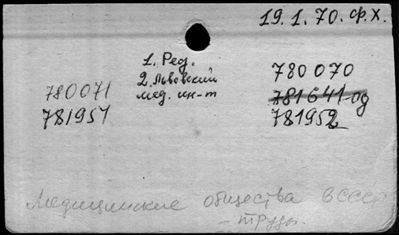 19.1.70. ф.х.
1. Ред. 780070
780071 2. Львовский 781641-од
781951 мед. ин-т 781952
Медицинские общества в СССР
- труды.